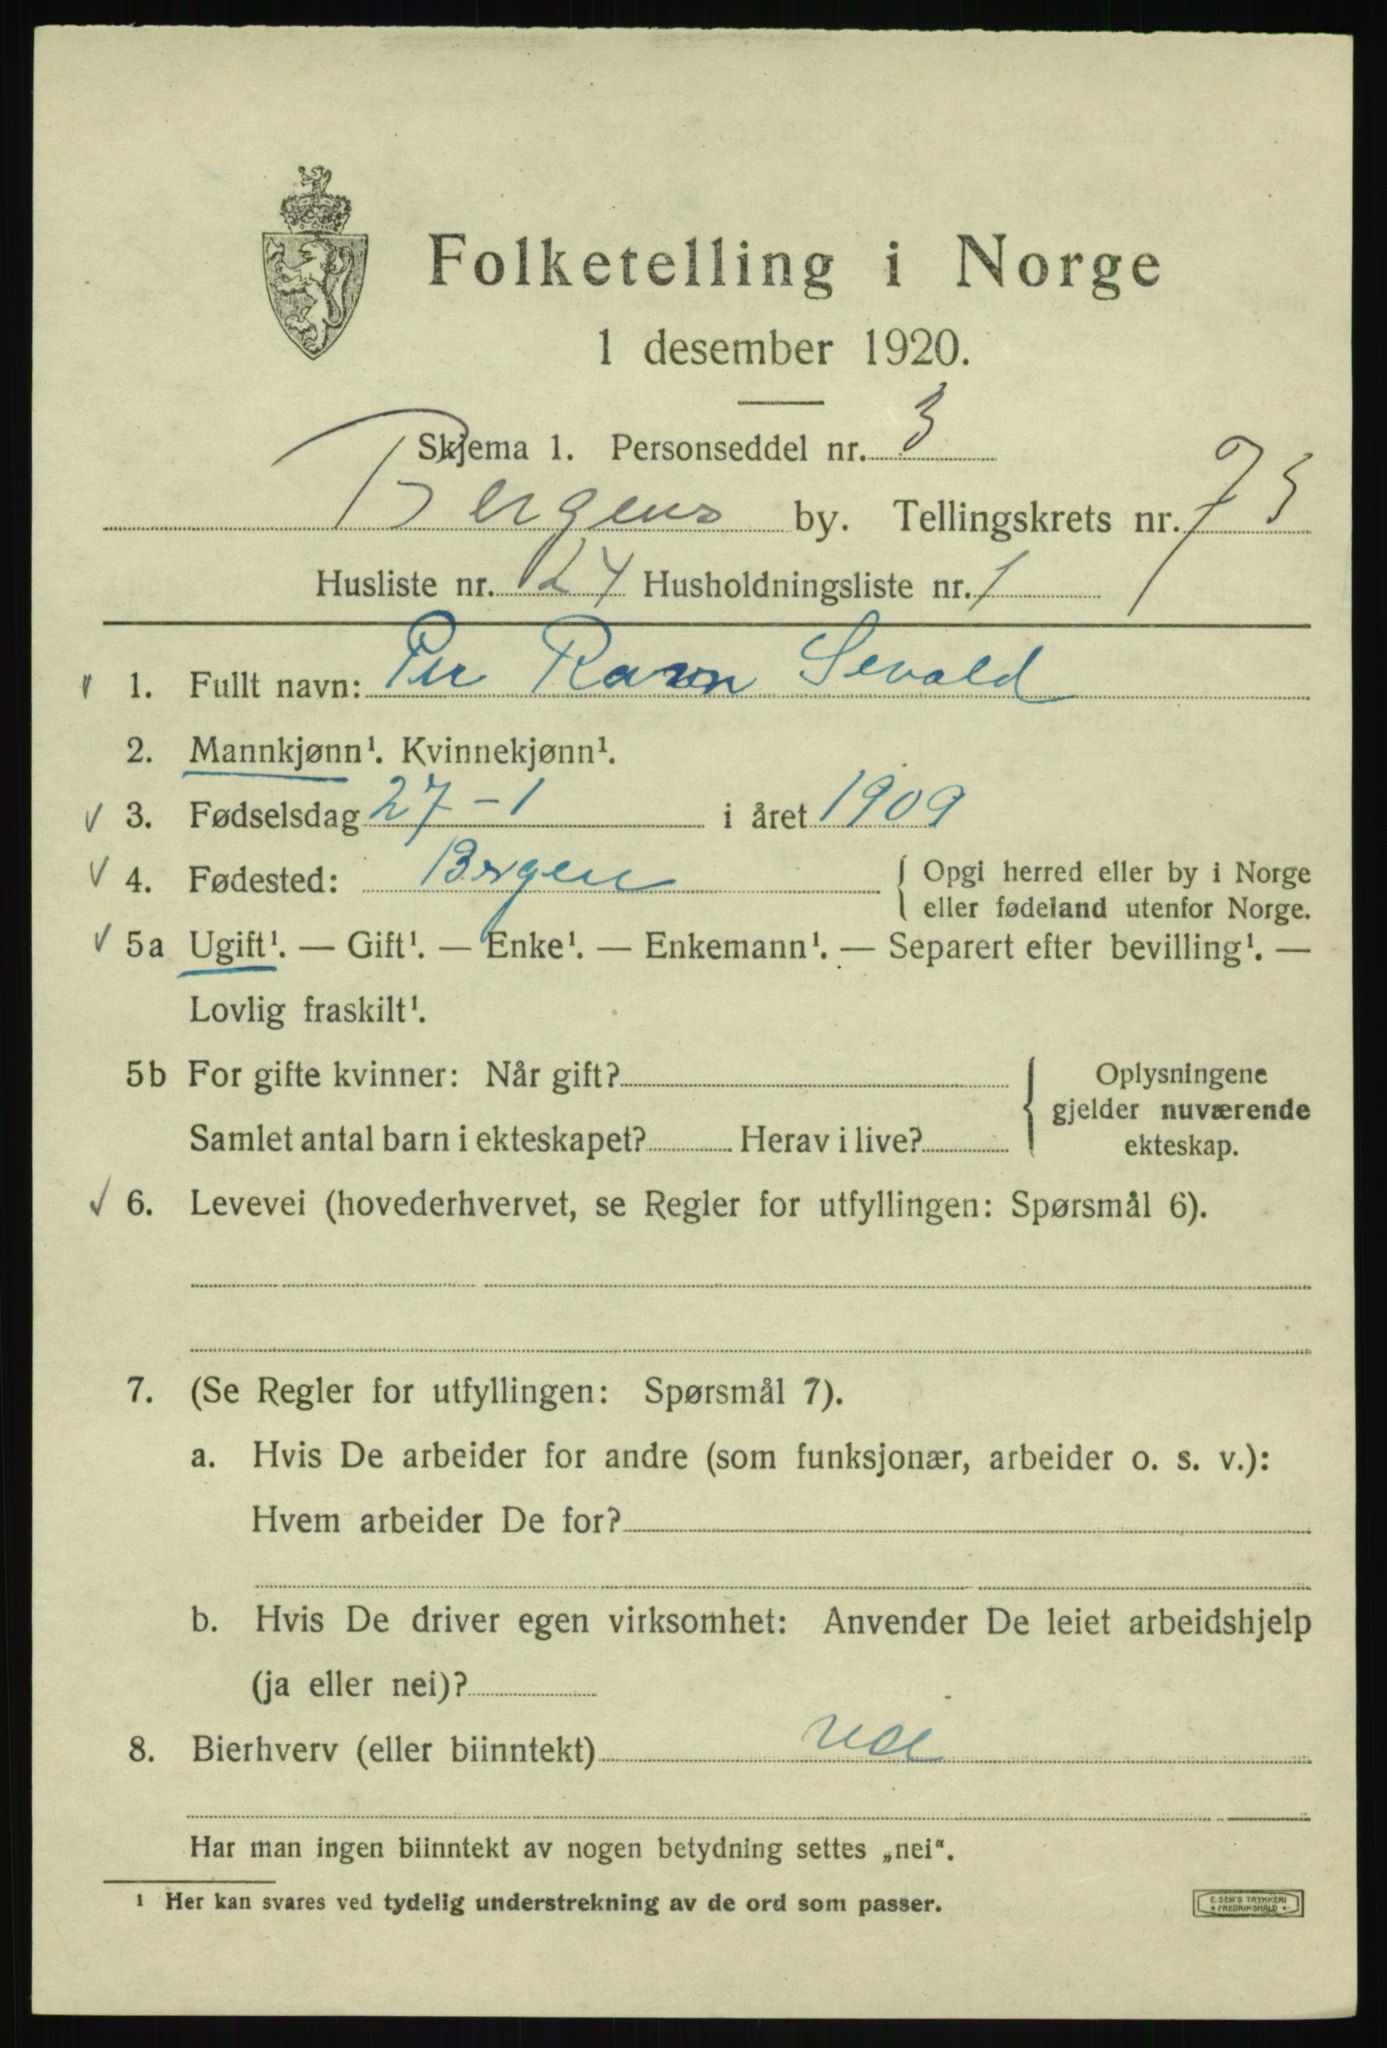 Folketelling i Norge
1 desember 1920.
Skjema 1. Personseddel nr. 3
Bergens by. Tellingskrets nr. 73
Husliste nr. 24 Husholdningsliste nr. 1
1. Fullt navn: Per Ravn Sevald
2. Mannkjønn¹. Kvinnekjønn¹.
3. Fødselsdag 27-1 i året 1909
4. Fødested: Bergen { Opgi herred eller by i Norge
eller fødeland utenfor Norge.
5a Ugift¹. — Gift¹. — Enke¹. — Enkemann¹. — Separert efter bevilling¹. —
Lovlig fraskilt¹.
5b For gifte kvinner: Når gift? { Oplysningene
gjelder nuværende
Samlet antal barn i ekteskapet? Herav i live? ekteskap.
6. Levevei (hovederhvervet, se Regler for utfyllingen: Spørsmål 6).
7. (Se Regler for utfyllingen: Spørsmål 7).
a. Hvis De arbeider for andre (som funksjonær, arbeider o. s. v.):
Hvem arbeider De for?
b. Hvis De driver egen virksomhet: Anvender De leiet arbeidshjelp
(ja eller nei)?
8. Bierhverv (eller biinntekt) nei
Har man ingen biinntekt av nogen betydning settes „nei“.
¹ Her kan svares ved tydelig understrekning av de ord som passer.
E. SEM'S TRYKKERI
FREDRIKSHALD